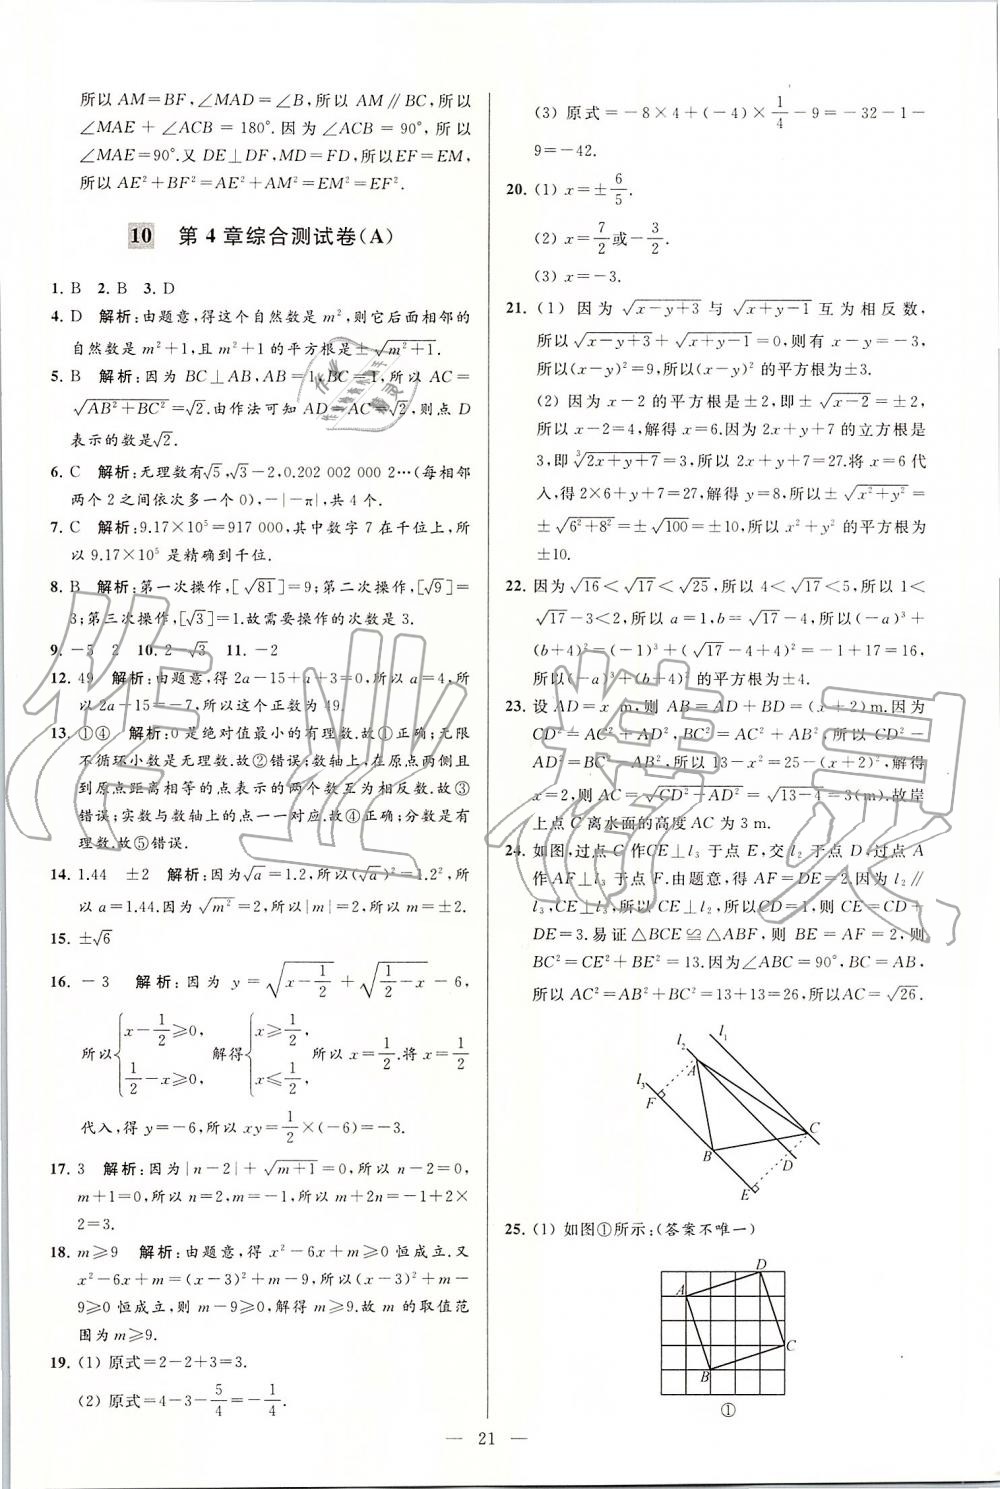 所以 AM=BF,∠MAD=∠B,所以 AM∥BC,所以
∠MAE+∠ACB=180°.因为∠ACB=90°,所以
∠MAE=90°.又 DE⊥DF,MD=FD,所以EF=EM,
所以 AE²+BF²=AE²+AM²=EM²=EF².
10 第4章综合测试卷(A)
1. B 2. B 3. D
4. D 解析:由题意,得这个自然数是 m²,则它后面相邻的
自然数是 m²+1,且 m²+1 的平方根是±√(m²+1).
5. B 解析:因为 BC⊥AB,AB=1,BC=1,所以 AC=
√(AB²+BC²)=√2.由作法可知 AD=AC=√2,则点 D
表示的数是√2.
6. C 解析:无理数有√5,√3-2,0.202 002 000 2…(每相邻
两个 2 之间依次多一个 0),-|-π|,共 4 个.
7. C 解析:9.17×10⁵=917 000,其中数字 7 在千位上,所
以 9.17×10⁵ 是精确到千位.
8. B 解析:第一次操作,[√81]=9;第二次操作,[√9]=
3;第三次操作,[√3]=1.故需要操作的次数是 3.
9. -5 2 10. 2-√3 11. -2
12. 49 解析:由题意,得 2a-15+a+3=0,所以 a=4,所
以 2a-15=-7,所以这个正数为 49.
13. ①④ 解析:0是绝对值最小的有理数.故①正确;无限
不循环小数是无理数.故②错误;数轴上,在原点两侧且
到原点距离相等的点表示的两个数互为相反数.故③
错误;实数与数轴上的点一一对应.故④正确;分数是有
理数.故⑤错误.
14. 1.44 ±2 解析:因为√a=1.2,所以(√a)²=1.2²,所
以 a=1.44.因为√(m²)=2,所以|m|=2,所以 m=±2.
15. ±√6
16. -3 解析:因为 y=√(x-1/2)+√(1/2-x)-6,
所以{x-1/2≥0, 1/2-x≥0, 解得{x≥1/2, x≤1/2, 所以 x=1/2.将 x=1/2
代入,得 y=-6,所以 xy=1/2×(-6)=-3.
17. 3 解析:因为|n-2|+√(m+1)=0,所以 n-2=0,
m+1=0,所以 n=2,m=-1,所以 m+2n=-1+2×
2=3.
18. m≥9 解析:由题意,得 x²-6x+m≥0 恒成立.又
x²-6x+m=(x-3)²+m-9,所以(x-3)²+m-
9≥0 恒成立,则 m-9≥0,解得 m≥9.故 m 的取值范
围为 m≥9.
19. (1) 原式=2-2+3=3.
(2) 原式=4-3-5/4=-1/4.
(3) 原式=-8×4+(-4)×1/4-9=-32-1-
9=-42.
20. (1) x=±6/5.
(2) x=7/2或-3/2.
(3) x=-3.
21. (1) 因为√(x-y+3)与√(x+y-1)互为相反数,
所以√(x-y+3)+√(x+y-1)=0,则有 x-y=-3,
所以(x-y)²=9,所以(x-y)² 的平方根为±3.
(2) 因为 x-2 的平方根是±2,即±√(x-2)=±2,
所以 x-2=4,解得 x=6.因为 2x+y+7 的立方根是
3,即∛(2x+y+7)=3,所以 2x+y+7=27.将 x=6 代
入,得 2×6+y+7=27,解得 y=8,所以±√(x²+y²)=
±√(6²+8²)=±√100=±10,所以 x²+y² 的平方根为
±10.
22. 因为√16<√17<√25,所以 4<√17<5,所以 1<
√17-3<2,所以 a=1,b=√17-4,所以(-a)³+
(b+4)²=(-1)³+(√17-4+4)²=-1+17=16,
所以(-a)³+(b+4)² 的平方根为±4.
23. 设 AD=x m,则 AB=AD+BD=(x+2)m.因为
CD²=AC²+AD²,BC²=AC²+AB²,所以 CD²-
AD²=BC²-AB²,所以 13-x²=25-(x+2)²,解得
x=2,则 AC=√(CD²-AD²)=√(13-4)=3(m).故岸
上点 C 离水面的高度 AC 为 3 m.
24. 如图,过点 C 作CE⊥l₃ 于点 E,交 l₂ 于点 D,过点 A
作 AF⊥l₃ 于点 F.由题意,得 AF=DE=2.因为 l₂∥
l₃,CE⊥l₃,所以 CE⊥l₂,所以CD=1,则 CE=CD+
DE=3.易证△BCE≌△ABF,则 BE=AF=2,则
BC²=CE²+BE²=13.因为∠ABC=90°,BC=AB,
所以 AC²=AB²+BC²=13+13=26,所以AC=√26.
l₁
l₂
A
l₃
F
C
B
D
E
25. (1) 如图①所示:(答案不唯一)
D
A
C
B
①
— 21 —
作业精灵